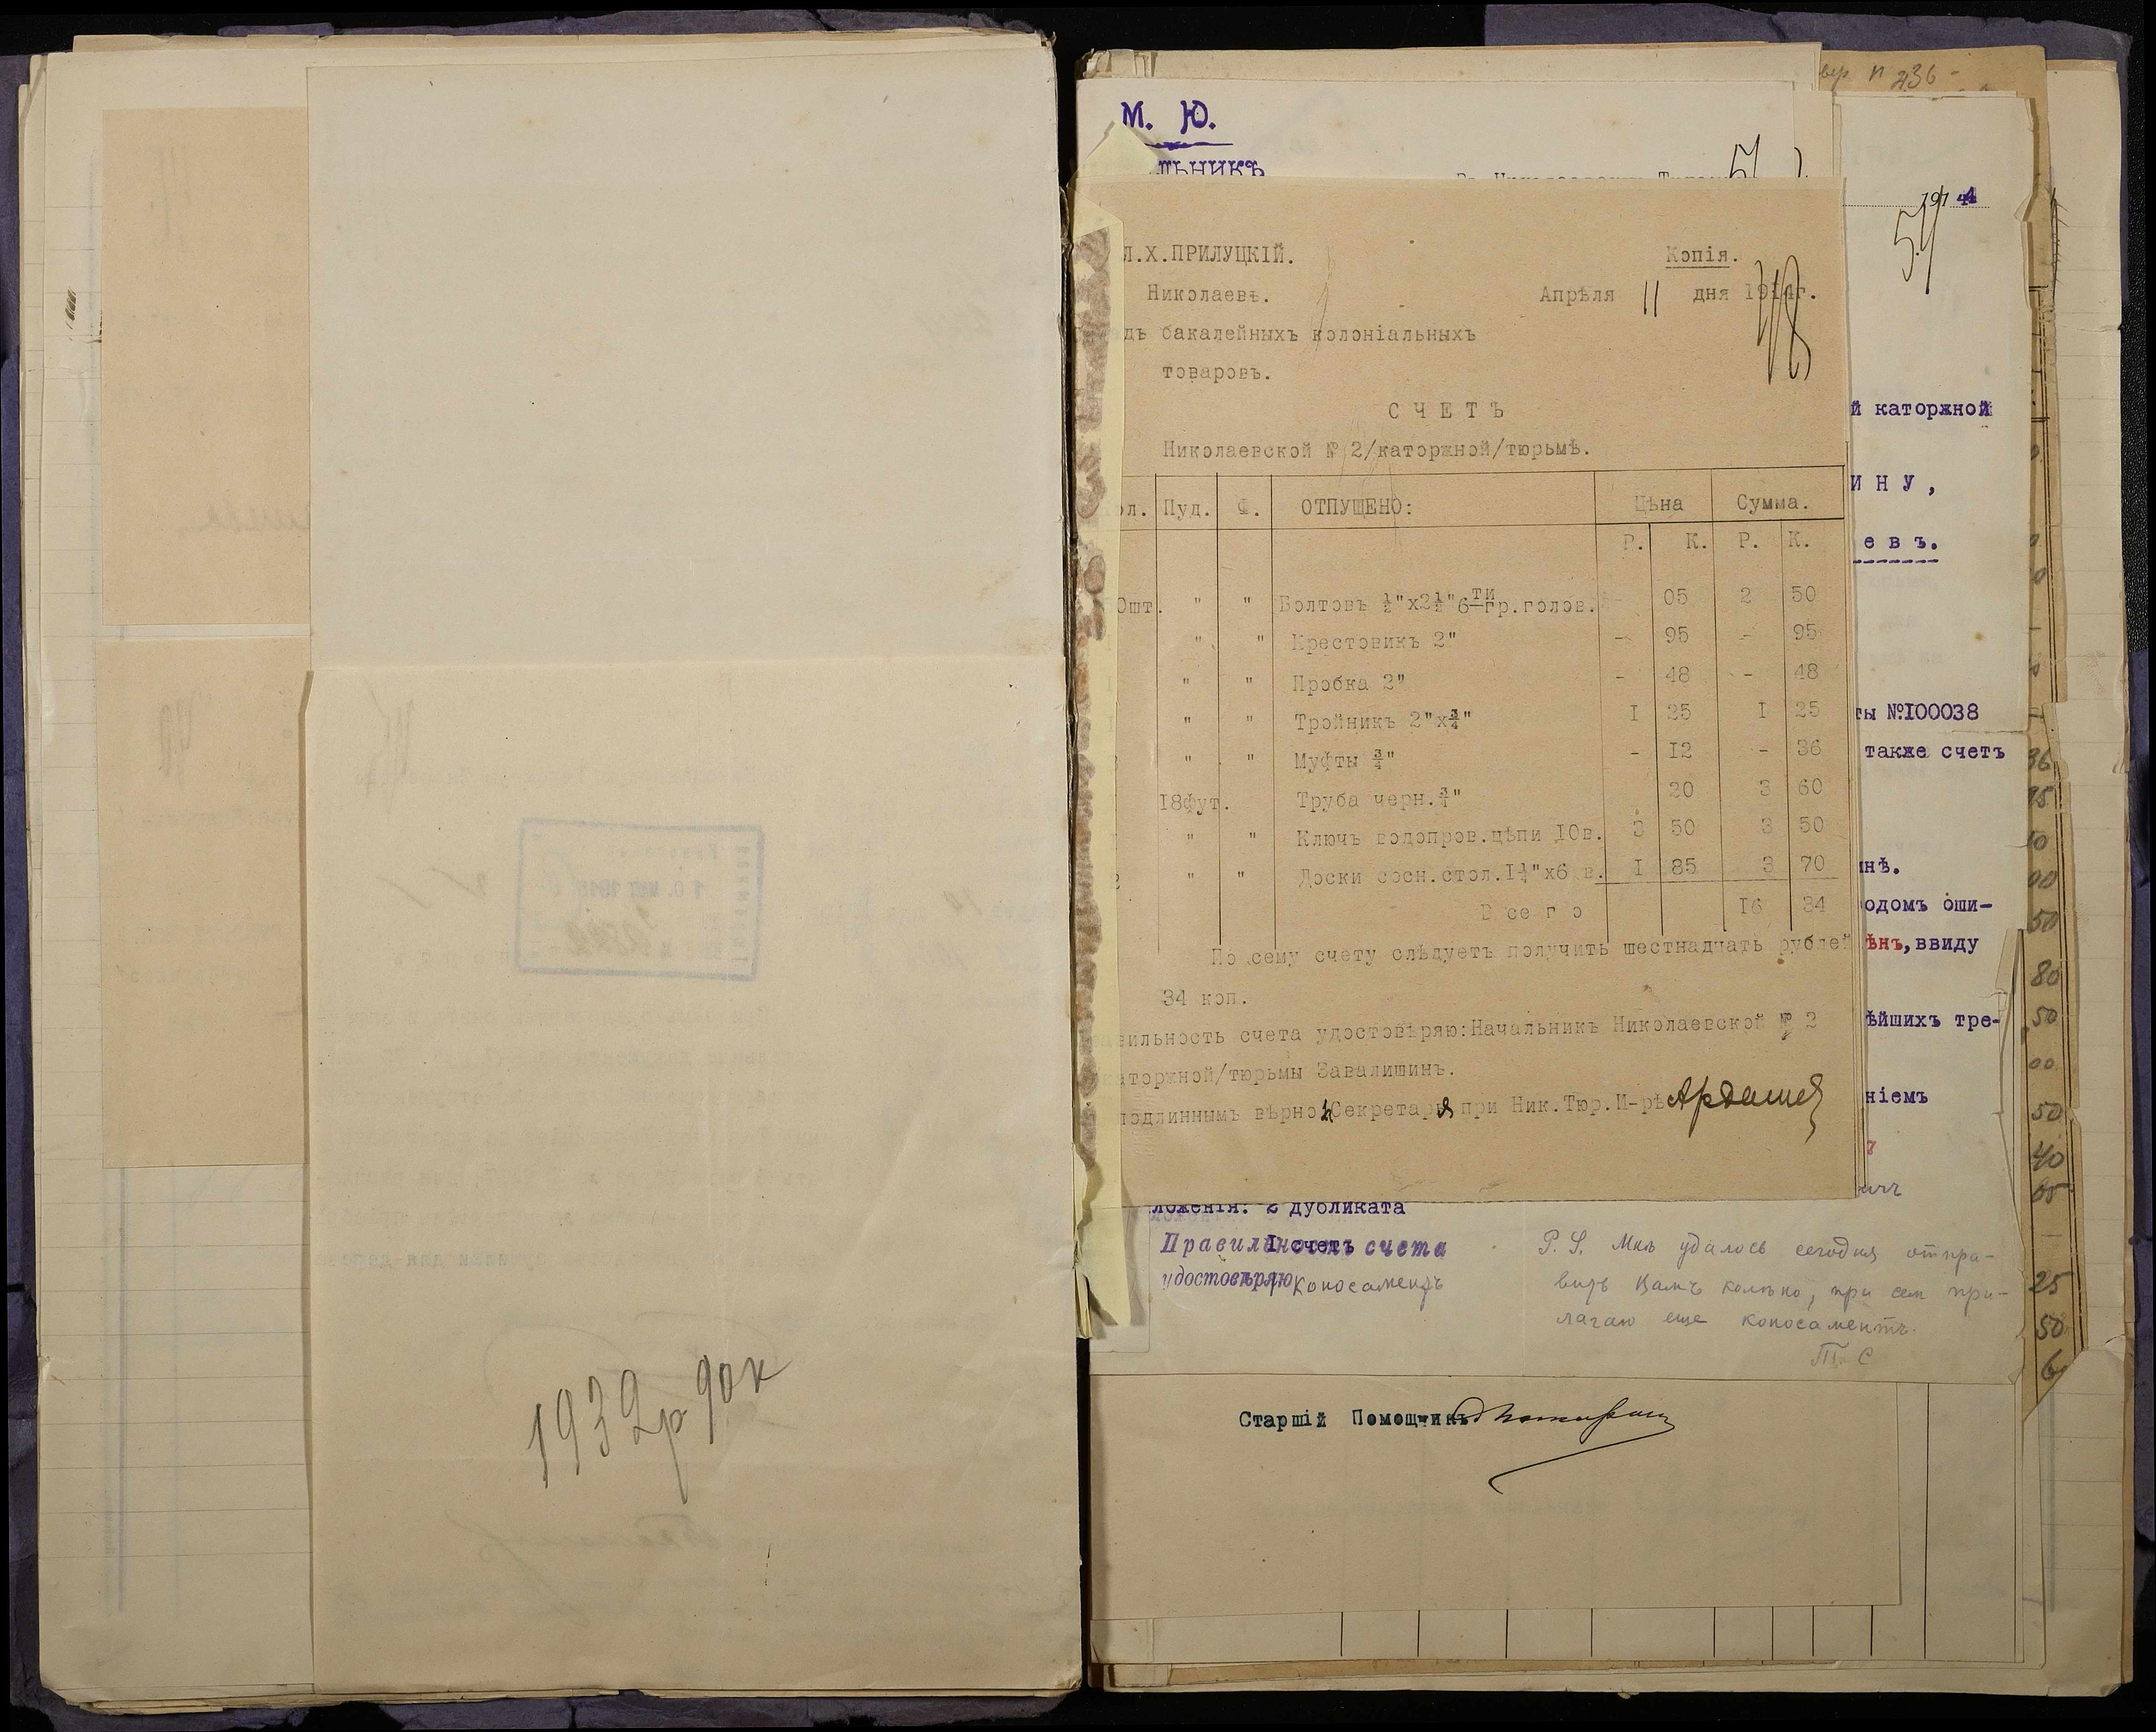 1932р 90к
М. Ю.
1914
54
Л.Х.ПРИЛУЦКІЙ.
Копія.
Николаевъ.
Апрѣля 11 дня 1914г.
48
бакалейныхъ колоніальныхъ
товаровъ.
СЧЕТЪ
Николаевской № 2/каторжной/тюрьмѣ.
Пуд. Ф. ОТПУЩЕНО: Цѣна Сумма.
Р. К. Р. К.
0шт. " " Болтовъ ½"х2½"6ти гр.голов. 05 2 50
" " Крестовикъ 2" - 95 - 95
" " Пробка 2" - 48 - 48
" " Тройникъ 2"х¾" I 25 I 25
" " Муфты ¾" - I2 - 36
I8фут. Труба черн.¾" 20 3 60
" " Ключъ водопров.цѣпи I0в. 3 50 3 50
2 " " Доски сосн.стол.I¼"х6 в. I 85 3 70
Всего I6 34
По сему счету слѣдуетъ получить шестнадцать рублей
34 коп.
вильность счета удостовѣряю:Начальникъ Николаевской № 2
каторжной/тюрьмы Завалишинъ.
подлиннымъ вѣрно: Секретарь при Ник.Тюр.И-рѣ
й каторжной
ИНУ,
евъ.
ты №I00038
также счетъ
нѣ.
одомъ оши-
ѣнъ,ввиду
ѣйшихъ тре-
ніемъ
ложенія: 2 дубликата
Правильность счета
I счетъ
удостовѣряю
коносаментъ
P. S. Мнѣ удалось сегодня отпра-
вить Вамъ колѣно, при сем при-
лагаю еще коносаментъ.
Старшій Помощникъ